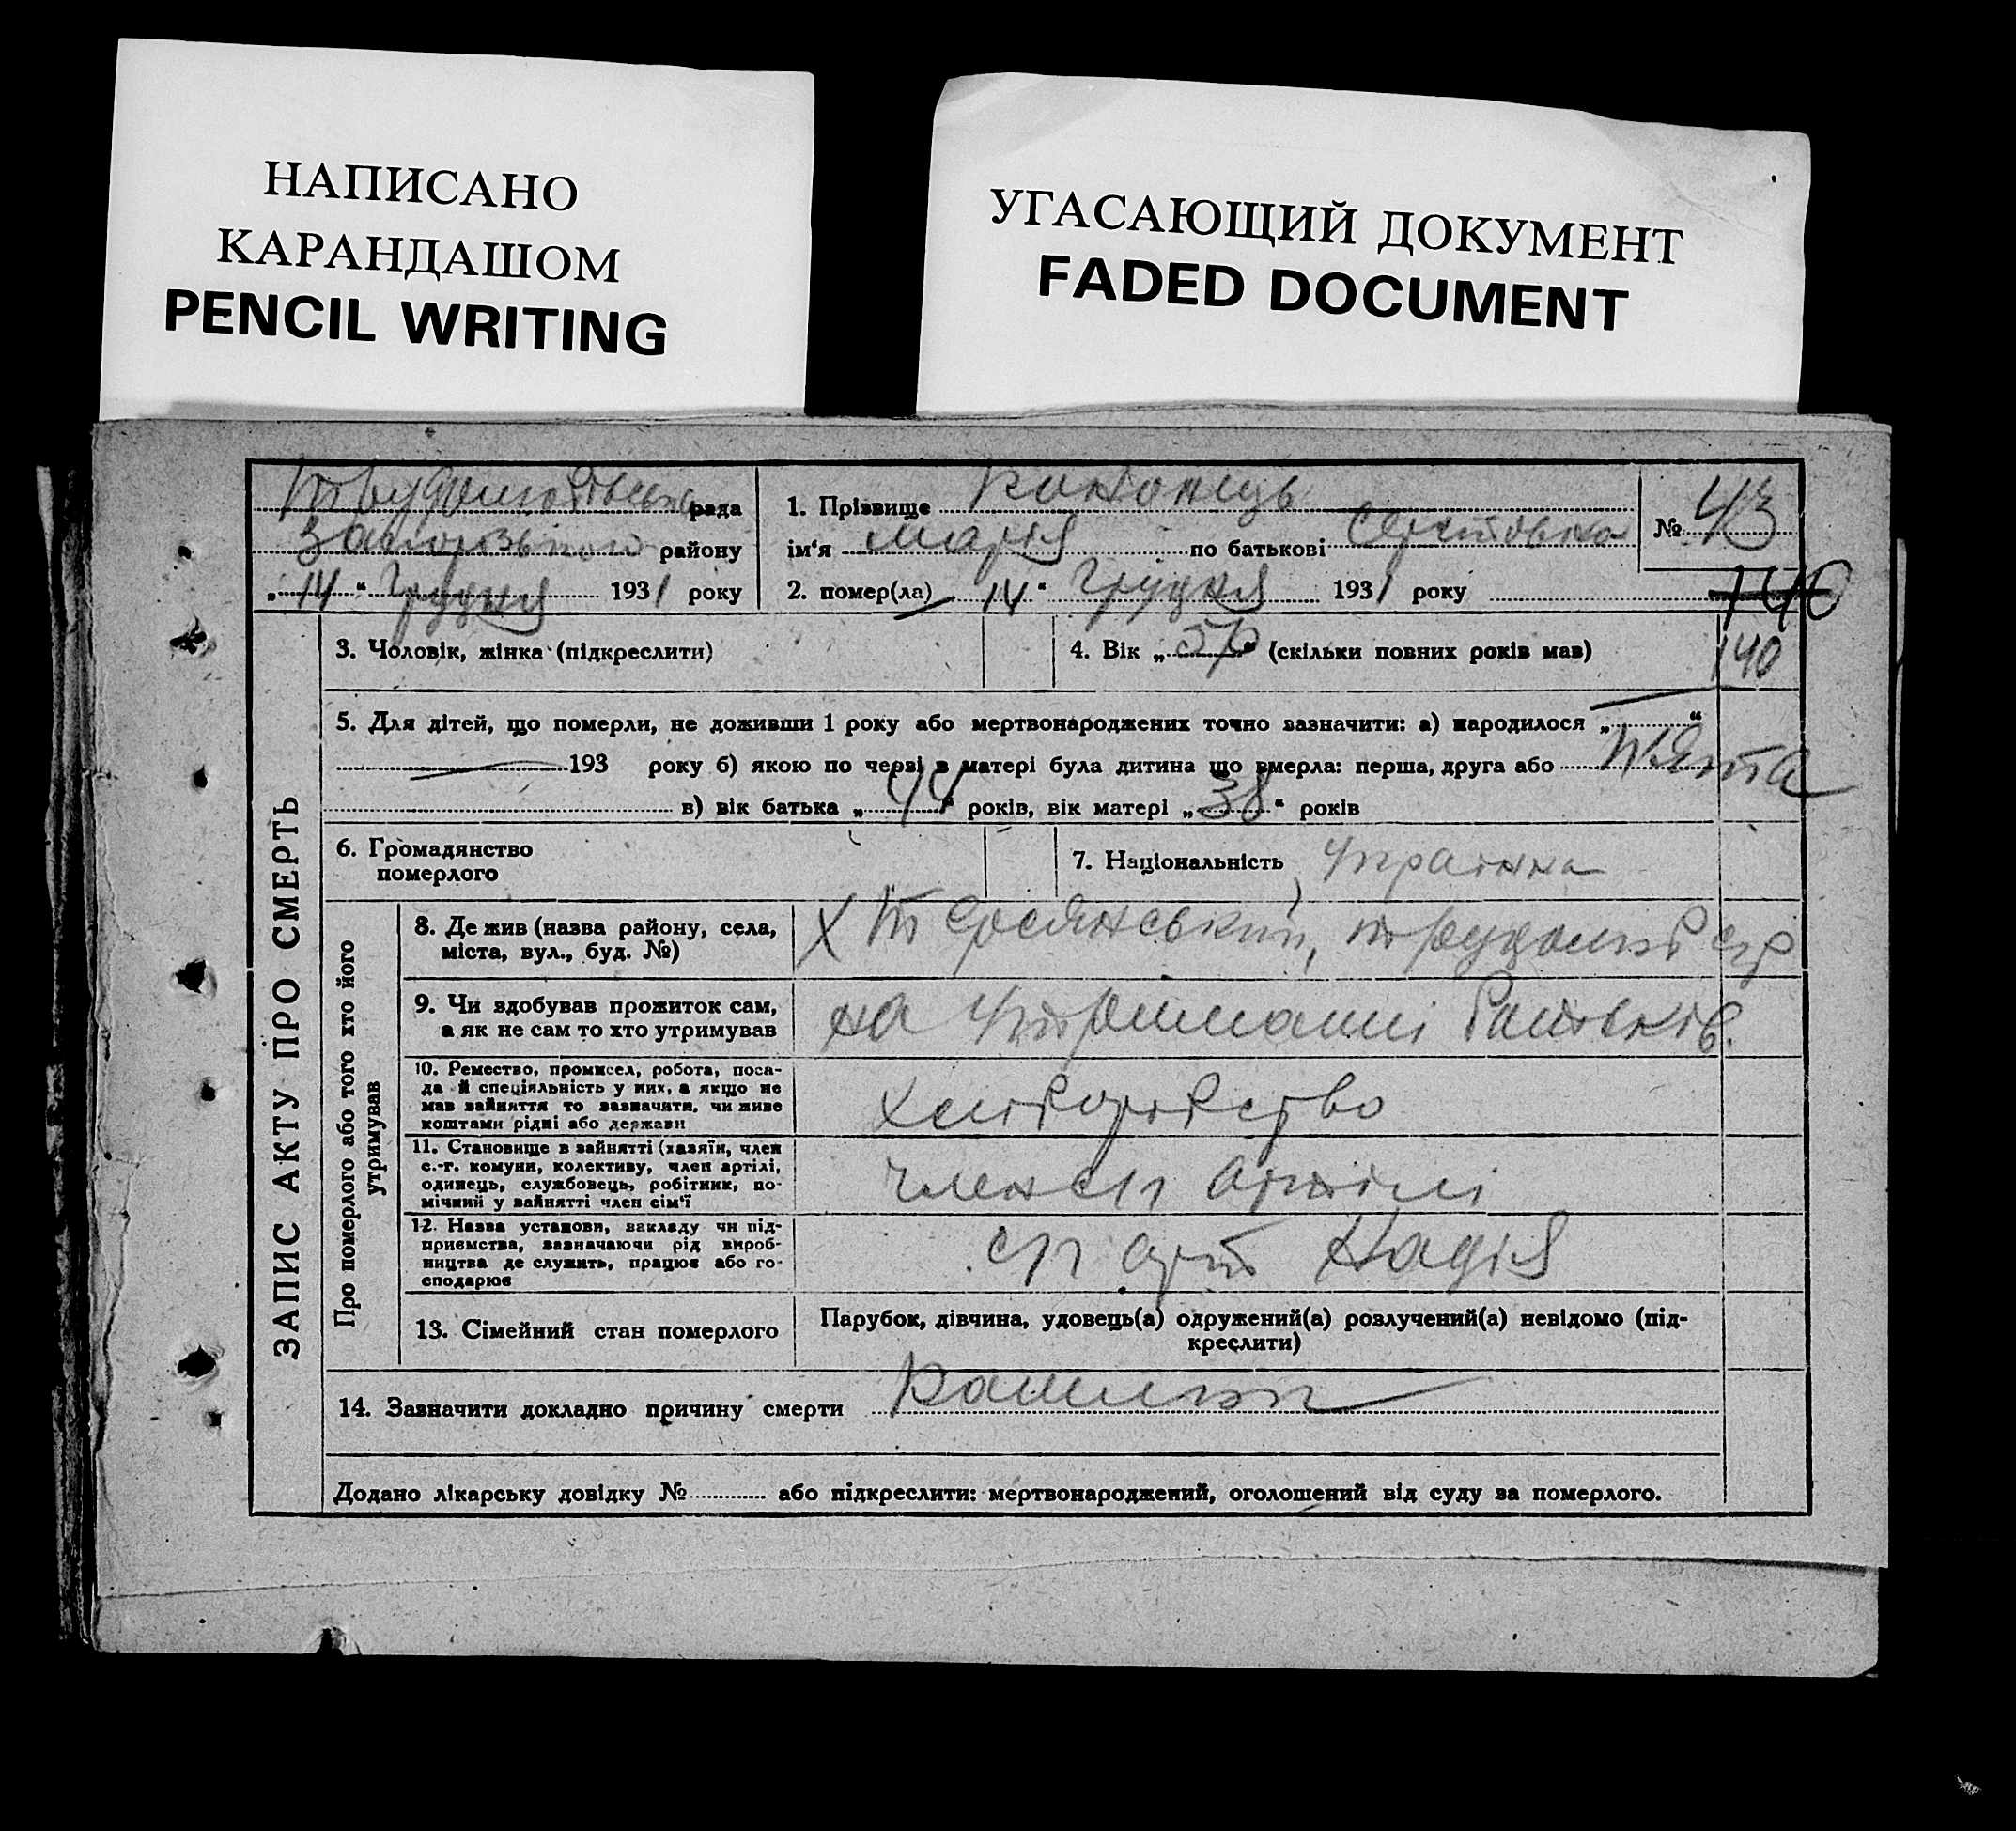 НАПИСАНО
КАРАНДАШОМ
PENCIL WRITING
УГАСАЮЩИЙ ДОКУМЕНТ
FADED DOCUMENT
рада
району
„14“ Грудня 1931 року
1. Прізвище
ім'я Марія по батькові
2. помер(ла) 14“ Грудня 1931 року
№ 43
140
140
ЗАПИС АКТУ ПРО СМЕРТЬ
3. Чоловік, жінка (підкреслити)
4. Вік „ “ (скільки повних років мав)
5. Для дітей, що померли, не доживши 1 року або мертвонароджених точно зазначити: а) народилося „ “
193 року б) якою по черзі в матері була дитина що вмерла: перша, друга або п'ята
в) вік батька „44“ років, вік матері „38“ років
6. Громадянство
померлого
7. Національність Українка
Про померлого або того хто його
утримував
8. Де жив (назва району, села,
міста, вул., буд. №)
9. Чи здобував прожиток сам,
а як не сам то хто утримував
на утриманні батьків.
10. Ремество, промисел, робота, поса-
да й спеціяльність у них, а якщо не
мав зайняття то зазначити, чи живе
коштами рідні або держави
Хліборобство
11. Становище в зайнятті (хазяїн, член
с.-г. комуни, колективу, член артілі,
одинець, службовець, робітник, по-
мічний у зайнятті член сім'ї
член сп артілі
12. Назва установи, закладу чи під-
приємства, зазначаючи рід вироб-
ництва де служить, працює або го-
сподарює
сп арт Надія
13. Сімейний стан померлого
Парубок, дівчина, удовець(а) одружений(а) розлучений(а) невідомо (під-
креслити)
14. Зазначити докладно причину смерти
Додано лікарську довідку № або підкреслити: мертвонароджений, оголошений від суду за померлого.